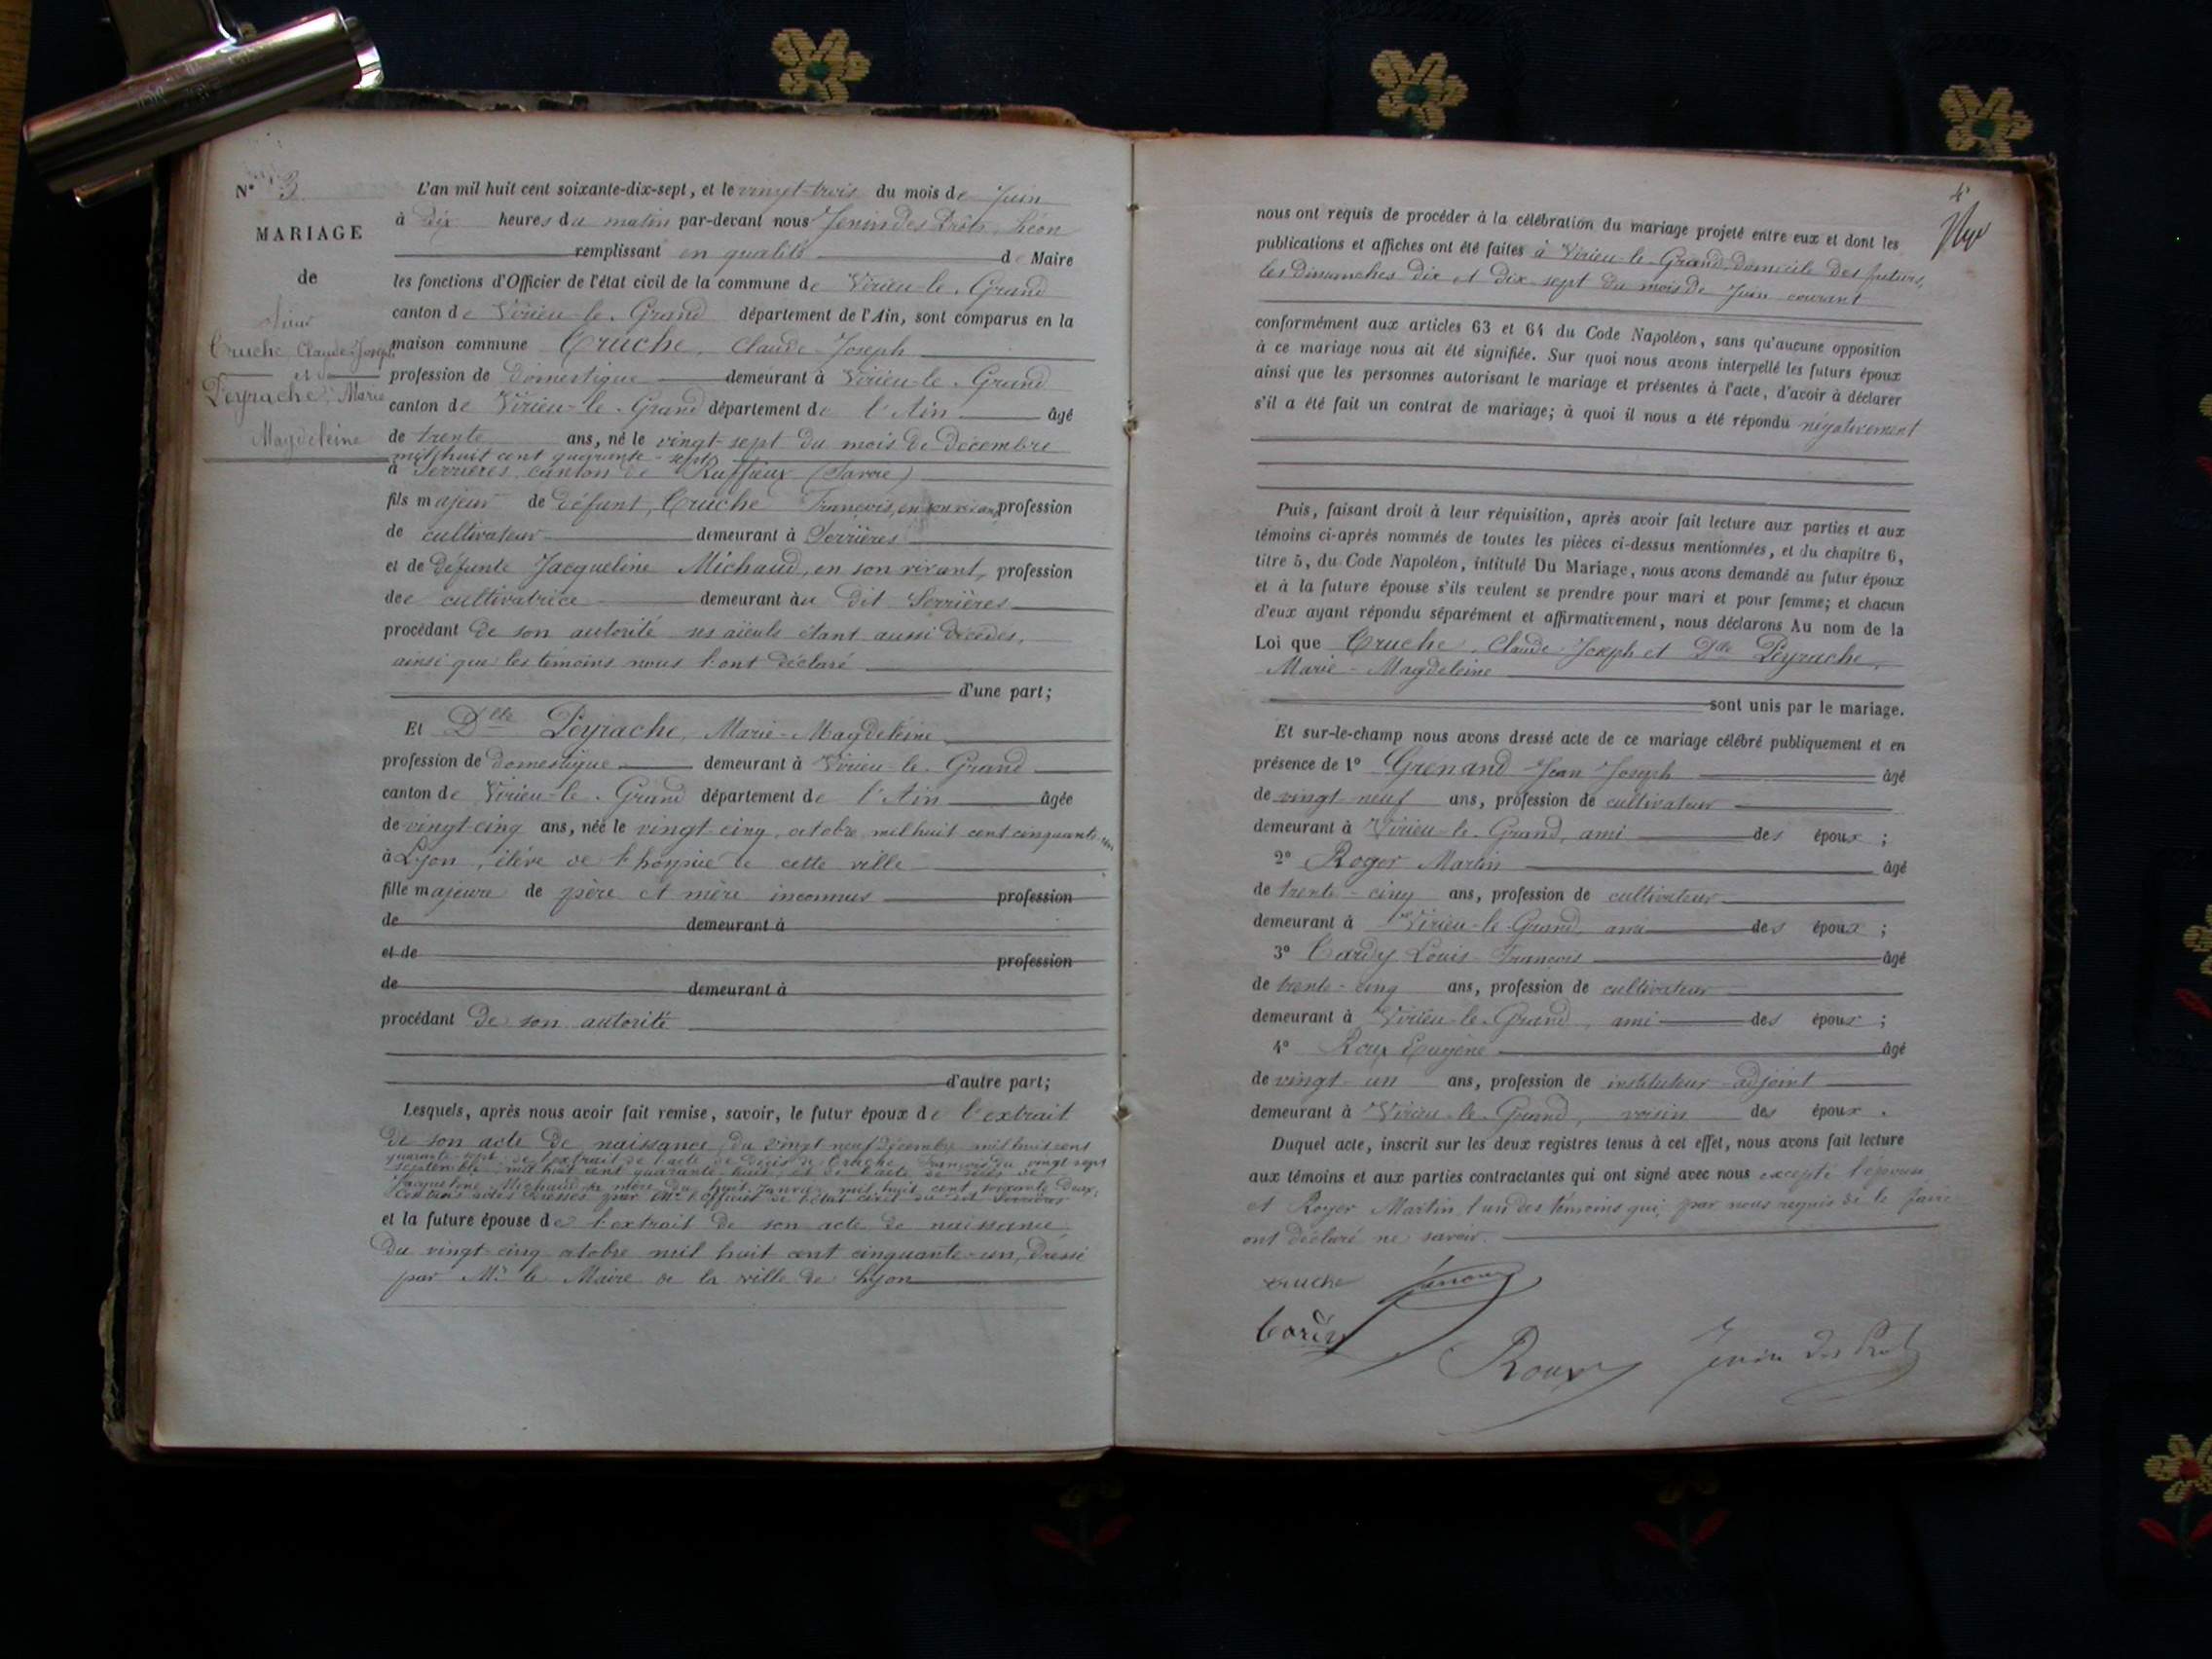 N° 3
MARIAGE
de
Sieur
Cruche, Claude-Joseph
et
Peyrache, Marie
Magdeleine
L'an mil huit cent soixante-dix-sept, et le vingt-trois du mois de Juin
à dix heures du matin par-devant nous Jenin des Prôts, Léon
remplissant en qualité de Maire
les fonctions d'Officier de l'état civil de la commune de Virieu-le-Grand
canton de Virieu-le-Grand département de l'Ain, sont comparus en la
maison commune Cruche, Claude-Joseph
profession de domestique demeurant à Virieu-le-Grand
canton de Virieu-le-Grand département de l'Ain âgé
de trente ans, né le vingt-sept du mois de décembre
mil huit cent quarante-sept
à Serrières, canton de Ruffieux (Savoie)
fils majeur de défunt, Cruche François, en son vivant, profession
de cultivateur demeurant à Serrières
et de défunte Jacqueline Michaud, en son vivant, profession
de cultivatrice demeurant au dit Serrières
procédant de son autorité ses aïeuls étant aussi décédés,
ainsi que les témoins nous l'ont déclaré
d'une part;
Et Dlle Peyrache, Marie-Magdeleine
profession de domestique demeurant à Virieu-le-Grand
canton de Virieu-le-Grand département de l'Ain âgée
de vingt-cinq ans, née le vingt-cinq, octobre mil huit cent cinquante-un
à Lyon, élève de l'hospice de cette ville
fille majeure de père et mère inconnus profession
de demeurant à
et de profession
de demeurant à
procédant de son autorité
d'autre part;
Lesquels, après nous avoir fait remise, savoir, le futur époux de l'extrait
de son acte de naissance, du vingt-neuf décembre mil huit cent
quarante-sept, de l'extrait de l'acte de décès de Cruche, François du vingt-sept
septembre mil huit cent quarante-huit, et de l'acte de décès de
Jacqueline Michaud sa mère du huit Janvier mil huit cent soixante-deux,
Ces trois actes dressés par Mr l'officier de l'état civil du dit Serrières
et la future épouse de l'extrait de son acte de naissance
du vingt-cinq octobre mil huit cent cinquante-un, dressé
par Mr le Maire de la ville de Lyon
4
nous ont requis de procéder à la célébration du mariage projeté entre eux et dont les
publications et affiches ont été faites à Virieu-le-Grand, domicile des futurs,
les dimanches dix et dix-sept du mois de Juin courant
conformément aux articles 63 et 64 du Code Napoléon, sans qu'aucune opposition
à ce mariage nous ait été signifiée. Sur quoi nous avons interpellé les futurs époux
ainsi que les personnes autorisant le mariage et présentes à l'acte, d'avoir à déclarer
s'il a été fait un contrat de mariage; à quoi il nous a été répondu négativement
Puis, faisant droit à leur réquisition, après avoir fait lecture aux parties et aux
témoins ci-après nommés de toutes les pièces ci-dessus mentionnées, et du chapitre 6,
titre 5, du Code Napoléon, intitulé Du Mariage, nous avons demandé au futur époux
et à la future épouse s'ils veulent se prendre pour mari et pour femme; et chacun
d'eux ayant répondu séparément et affirmativement, nous déclarons Au nom de la
Loi que Cruche, Claude-Joseph et Dlle Peyrache,
Marie-Magdeleine
sont unis par le mariage.
Et sur-le-champ nous avons dressé acte de ce mariage célébré publiquement et en
présence de 1° Grenand Jean Joseph âgé
de vingt-neuf ans, profession de cultivateur
demeurant à Virieu-le-Grand, ami des époux ;
2° Roger Martin âgé
de trente-cinq ans, profession de cultivateur
demeurant à Virieu-le-Grand, ami des époux ;
3° Cardy Louis François âgé
de trente-cinq ans, profession de cultivateur
demeurant à Virieu-le-Grand, ami des époux ;
4° Roux Eugene âgé
de vingt-un ans, profession de instituteur-adjoint
demeurant à Virieu-le-Grand, voisin des époux.
Duquel acte, inscrit sur les deux registres tenus à cet effet, nous avons fait lecture
aux témoins et aux parties contractantes qui ont signé avec nous excepté l'épouse
et Roger Martin, l'un des témoins qui, par nous requis de le faire
ont déclaré ne savoir.
cruche
Cardy
Roux
Jenin des Prôts